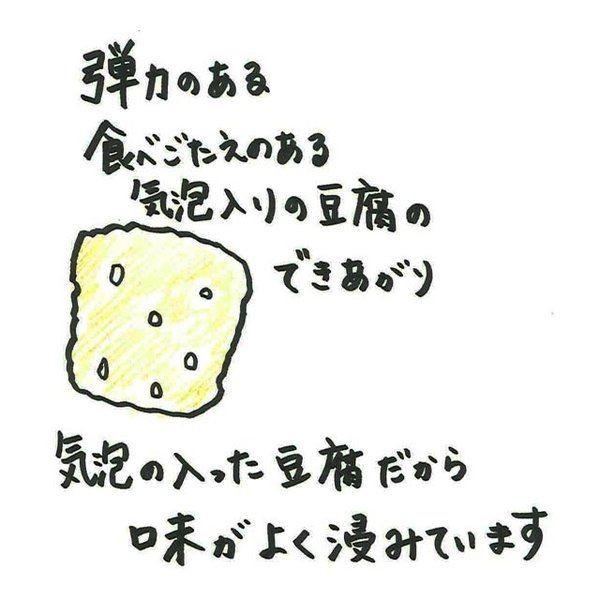 弾力のある
食べごたえのある
気泡入りの豆腐の
できあがり
気泡の入った豆腐だから
味がよく浸みています